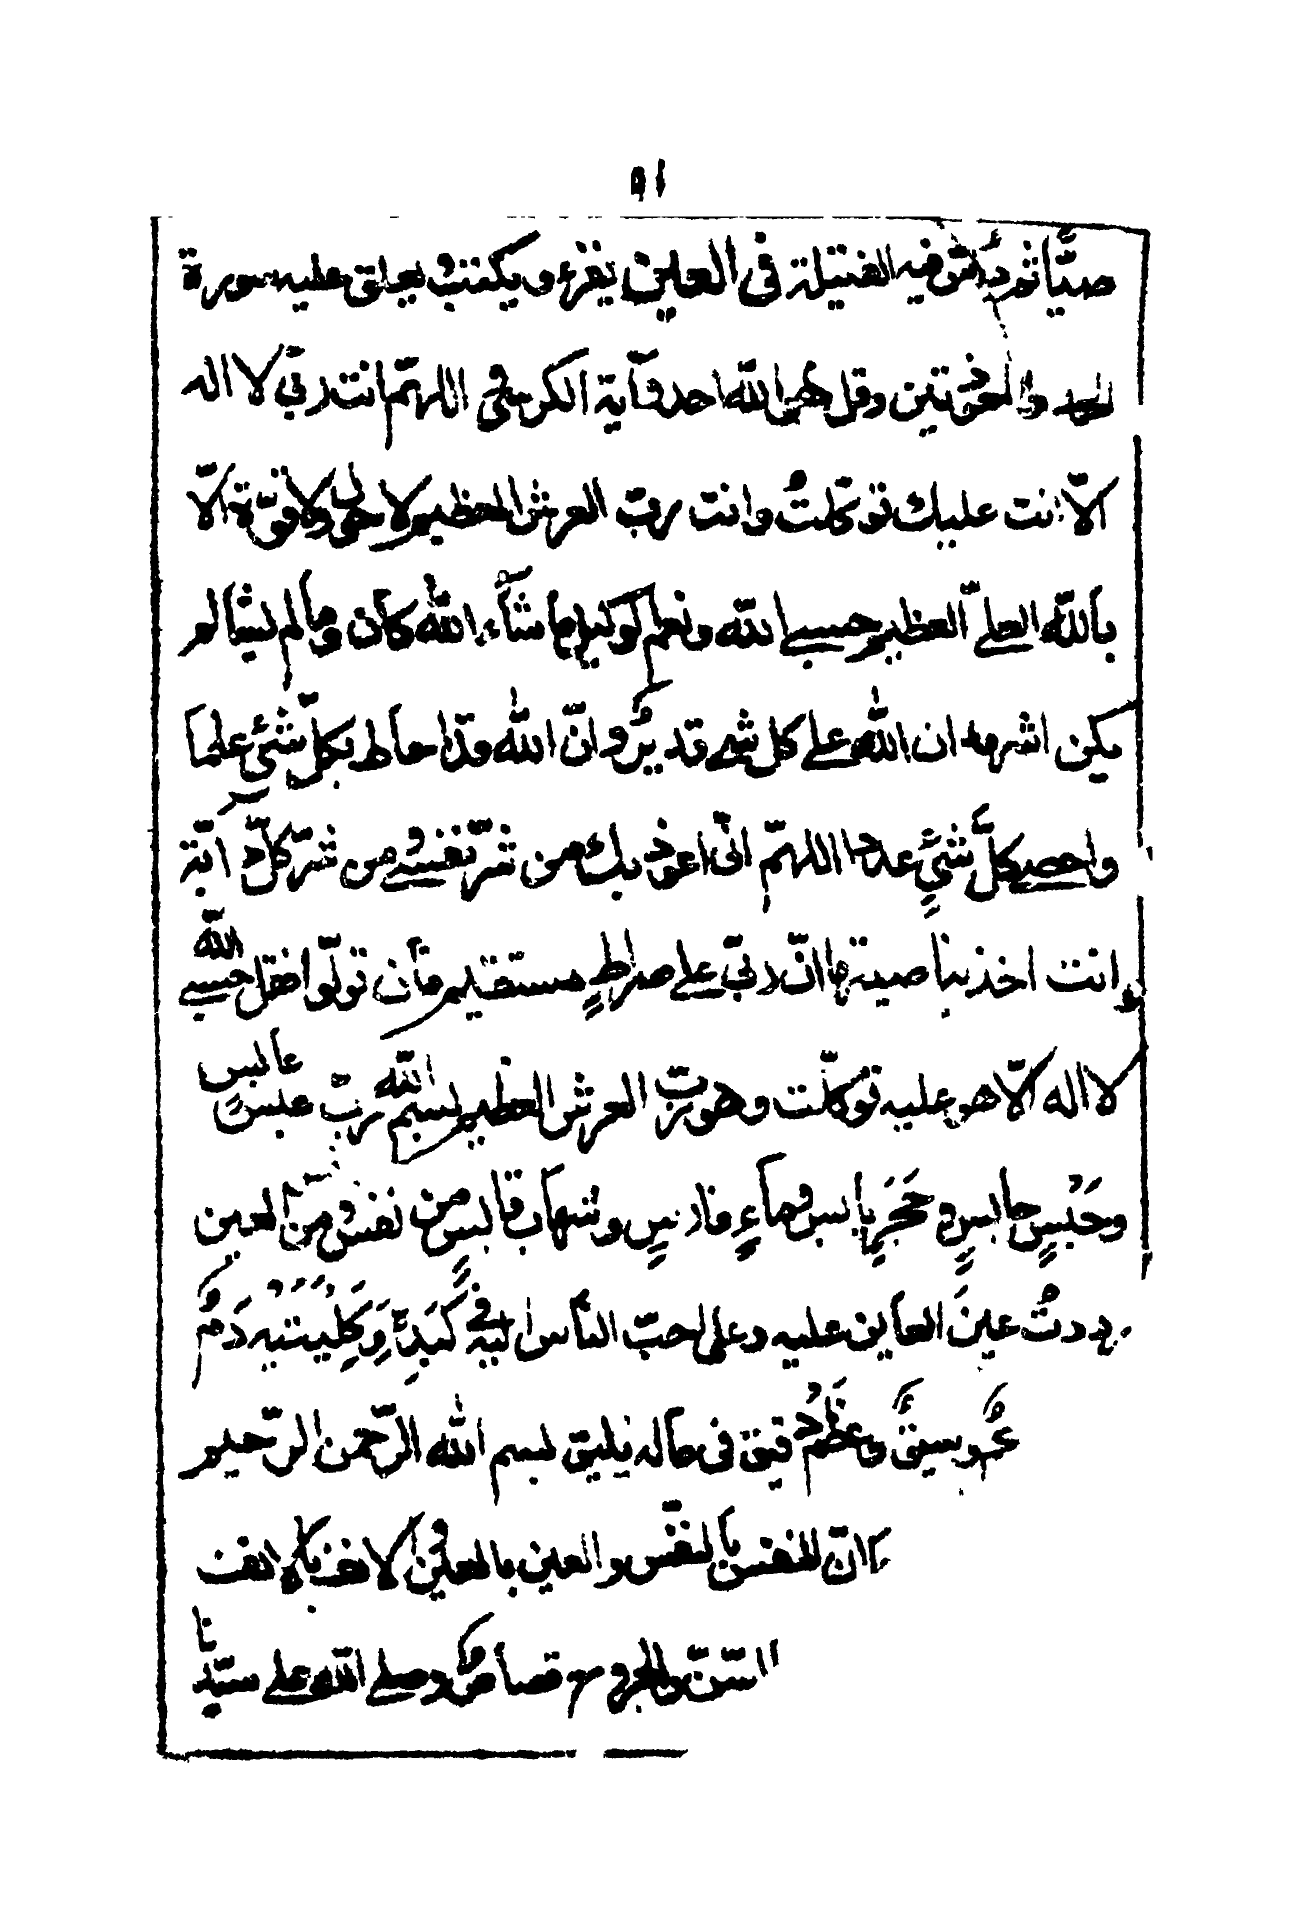 ٥١
صبيّا ثم ردّ فيه الفتيلة في العلين يقرء ويكتب يعلق عليه سورة
الحمد والمعوذتين وقل هو الله احد وآية الكرسي اللهمّ انت ربّي لا اله
الّا انت عليك توكّلتُ وانت ربّ العرش العظيم ولا حول ولا قوّة الّا
بالله العليّ العظيم حسبي الله ونعم الوكيل ما شآء الله كان وما لم يشأ لم
يكن اشهد ان الله على كل شي قديرٌ وانّ الله قد احاط بكلّ شئي علما
واحصى كلّ شئيٍ عددا اللهمّ انّي اعوذ بك من شرّ نفسي من شرّ كلّ دآبّة
وانت اخذ بناصيتها انّ ربّي على صراطٍ مستقيم فان تولّوا فقل حسبي الله
لا اله الّا هو عليه توكّلت وهو ربّ العرش العظيم بسم الله ربّ عبسٍ عابسٍ
وحَبْسٍ حابسٍ وحَجَرٍ يابس وماءٍ فارسٍ وشهاب قابسٍ من نفس ومن العين
رددتُ عينَ العاين عليه وعلى احبّ الناس اليه في كَبَدِهِ وَكِلِيَتيه دَمٌ
وعظمٌ دقيق في ماله يليق بسم الله الرّحمن الرّحيم
انّ النفس بالنفس والعين بالعين والانف بالانف
السّنّ والجروح قصاصٌ وصلى الله على سيّدنا